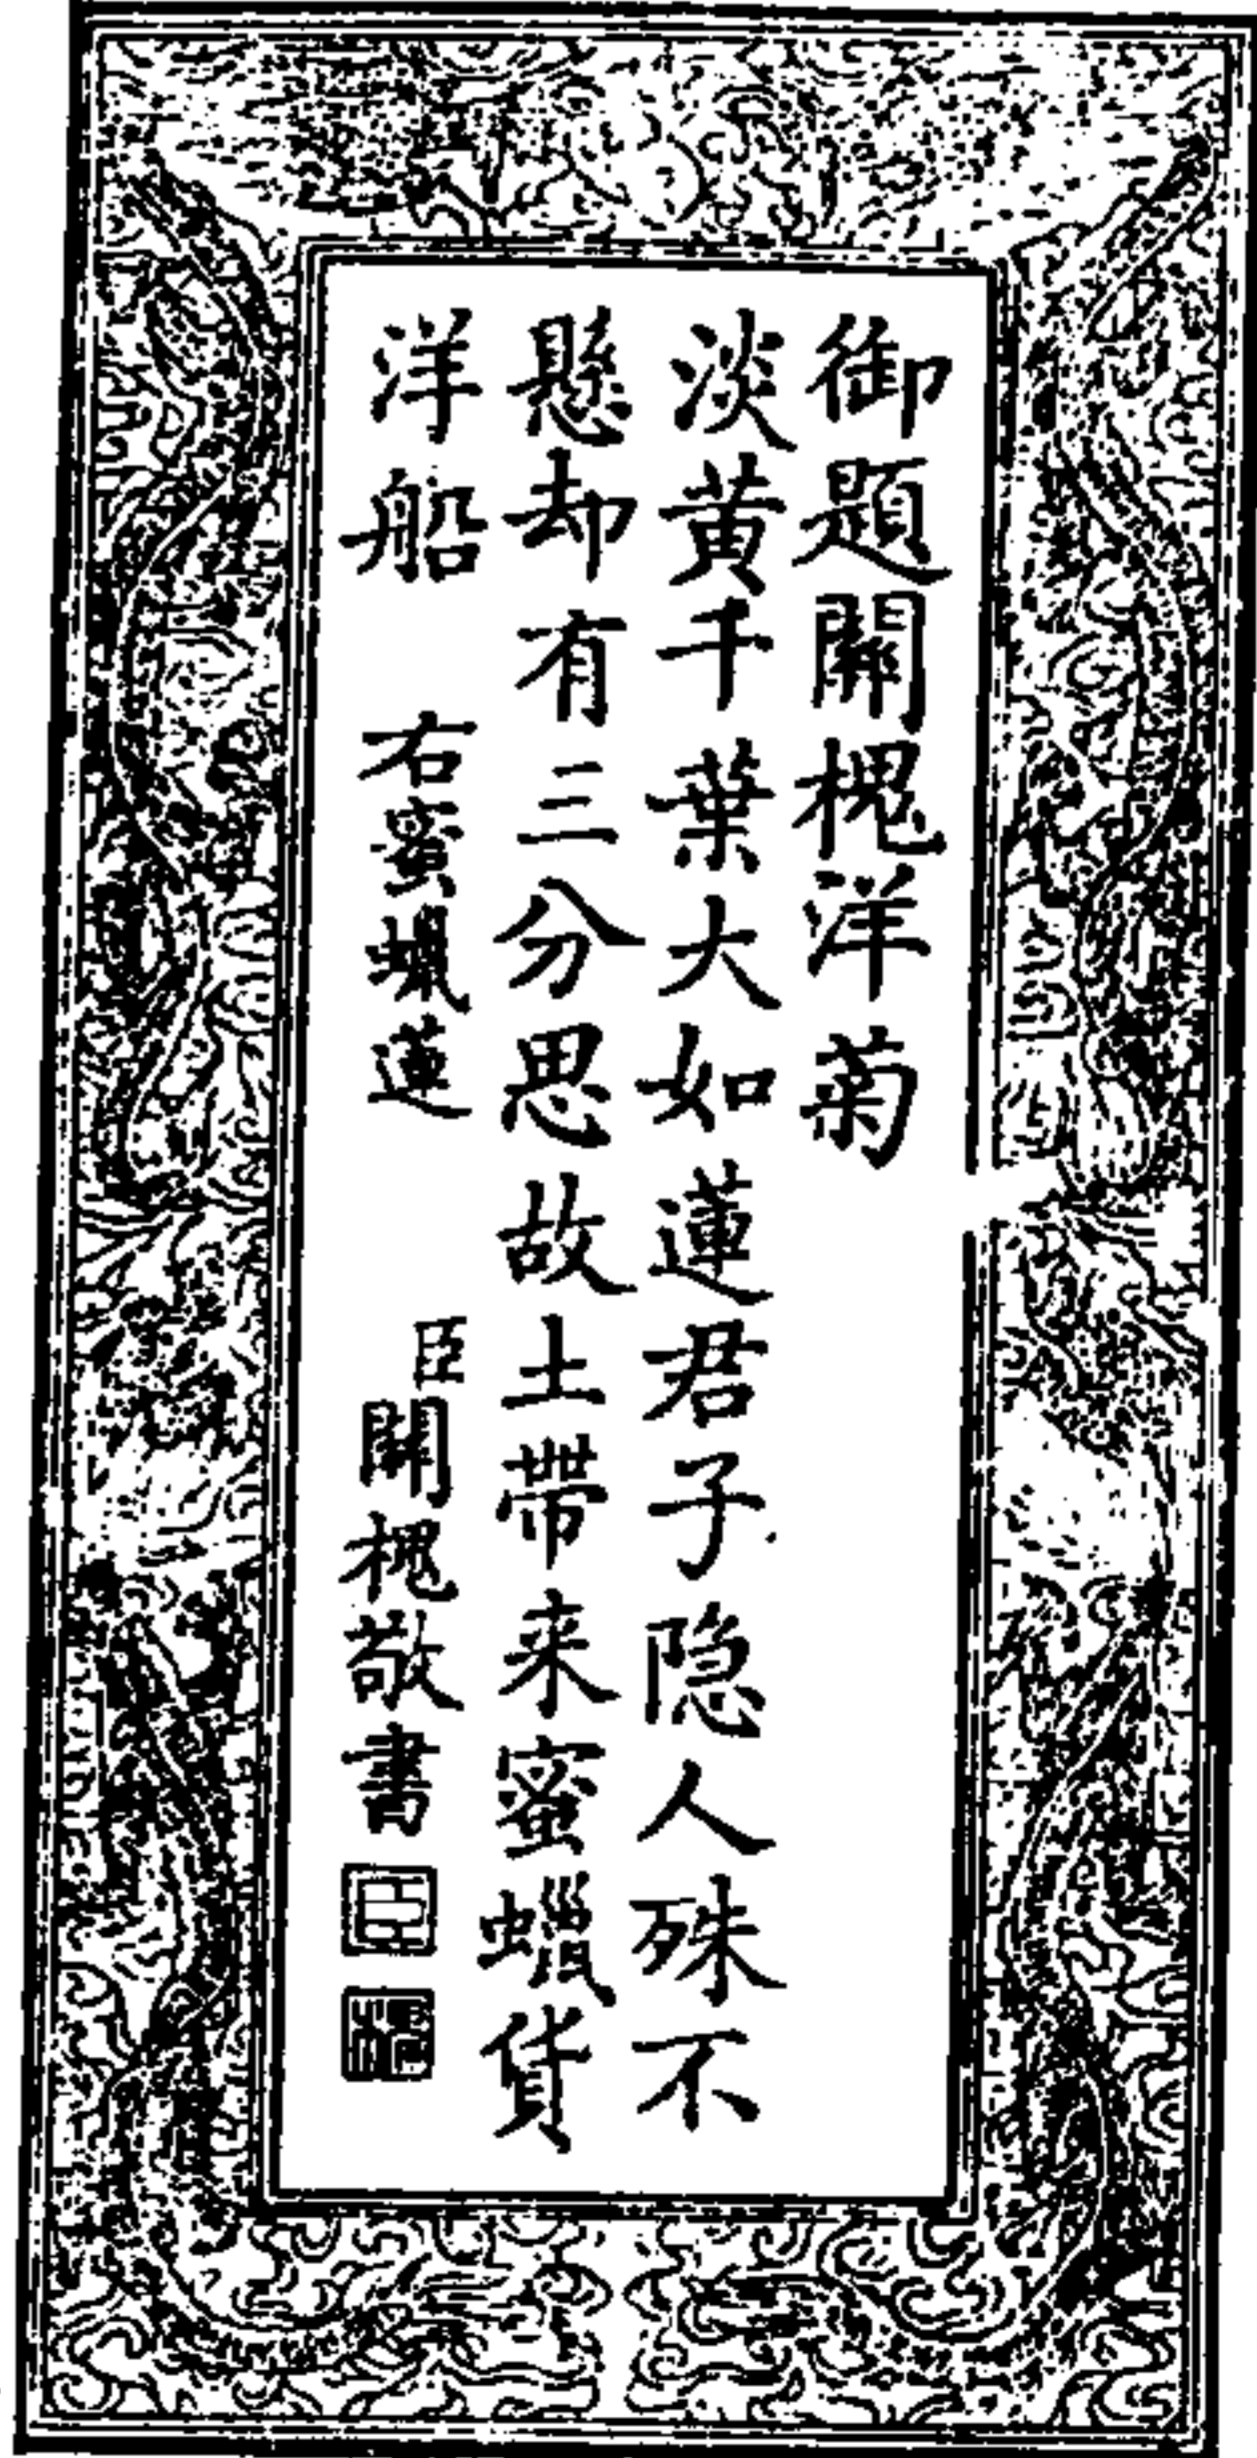 御題關槐洋菊
淡黄千葉大如蓮君子隐人殊不
懸却有三分思故土帶来蜜蠟貨
洋船
右蜜蠟蓮
臣關槐敬書
臣